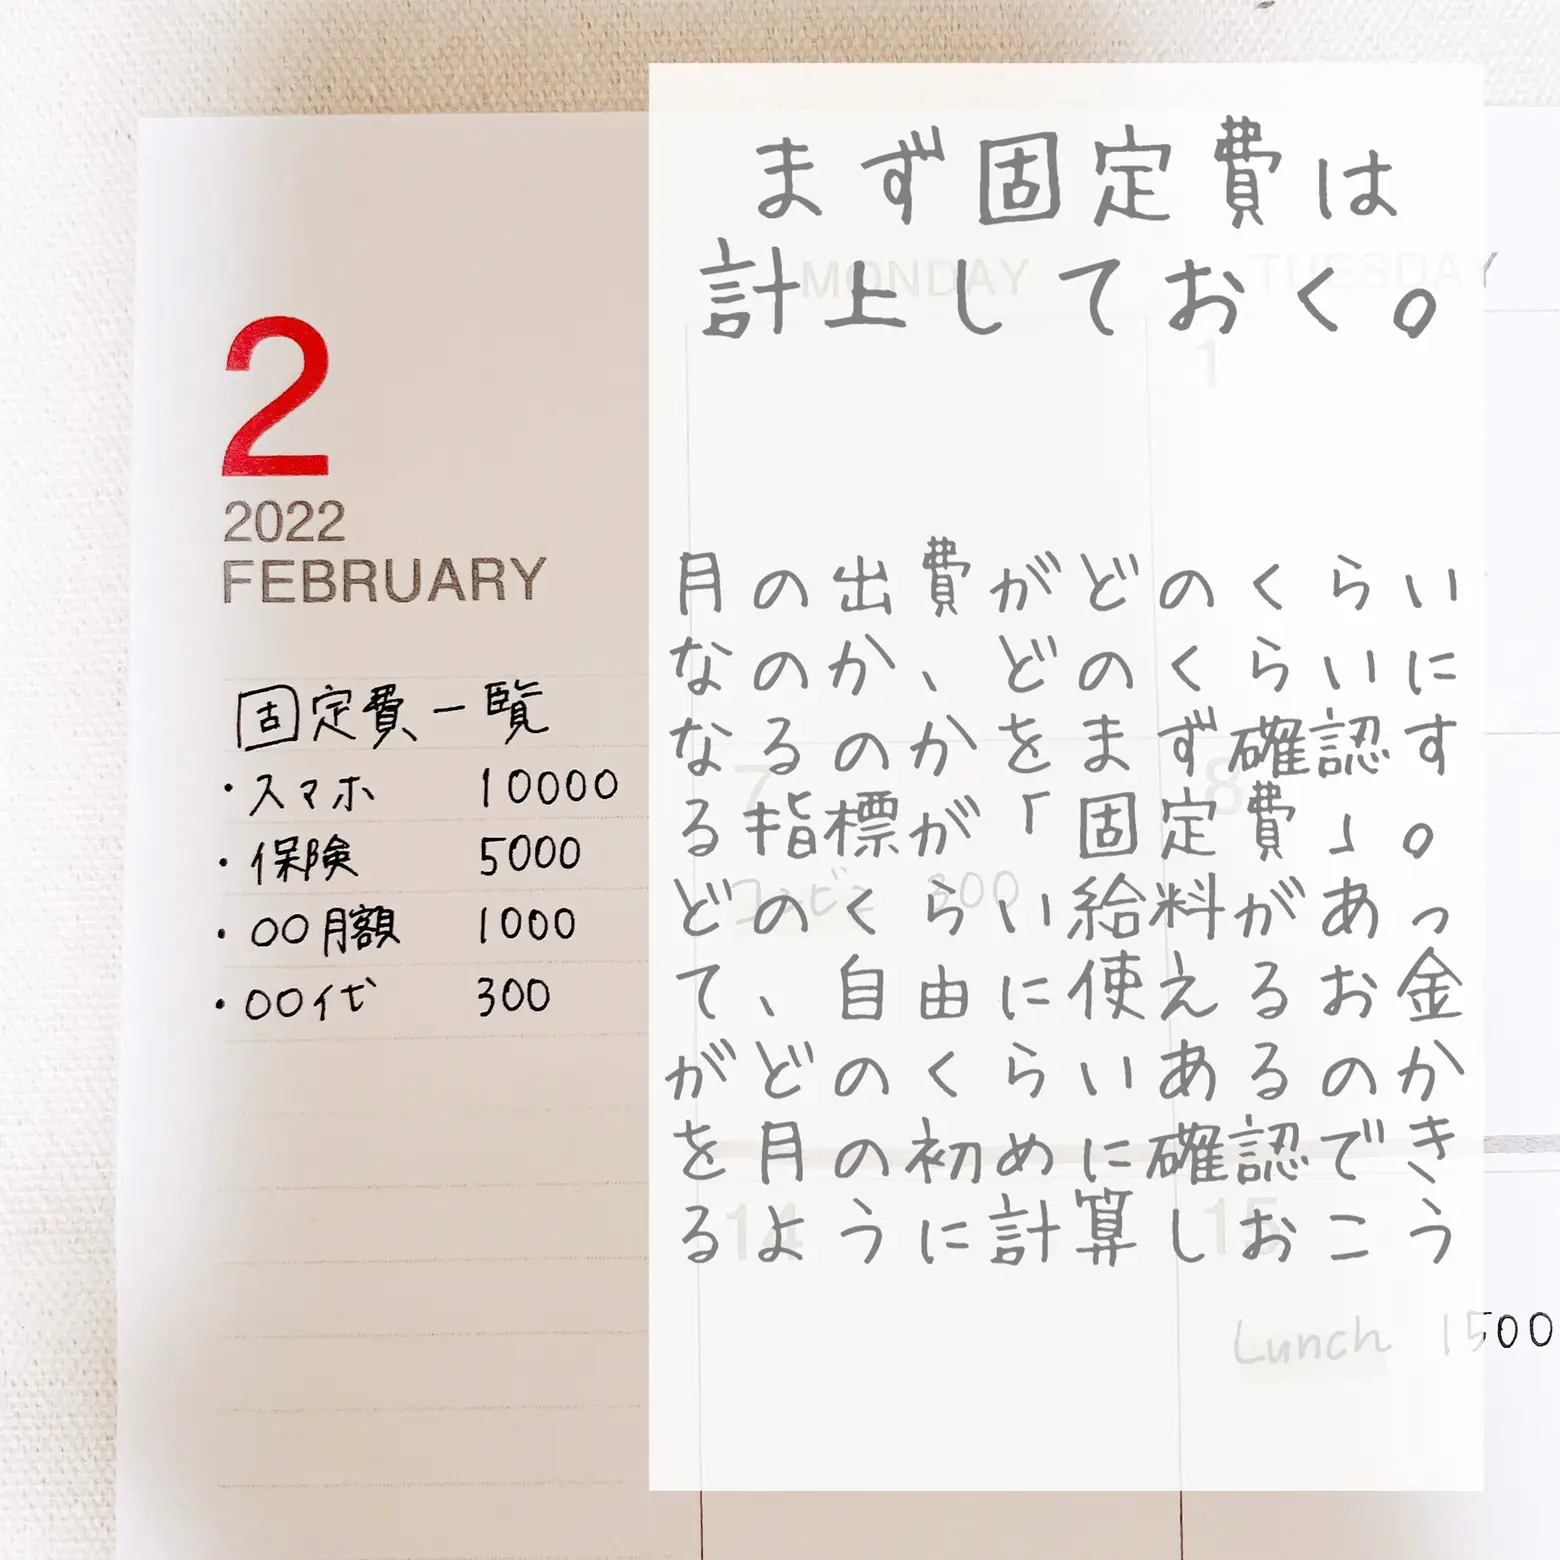 2
2022
FEBRUARY
固定費一覧
・スマホ 10000
・保険 5000
・〇〇月額 1000
・〇〇代 300
まず固定費は
計上しておく。
月の出費がどのくらい
なのか、どのくらいに
なるのかをまず確認す
る指標が「固定費」。
どのくらい給料があっ
て、自由に使えるお金
がどのくらいあるのか
を月の初めに確認でき
るように計算しおこう
MONDAY
TUESDAY
1
7
8
コンビニ 300
14
15
Lunch 1500